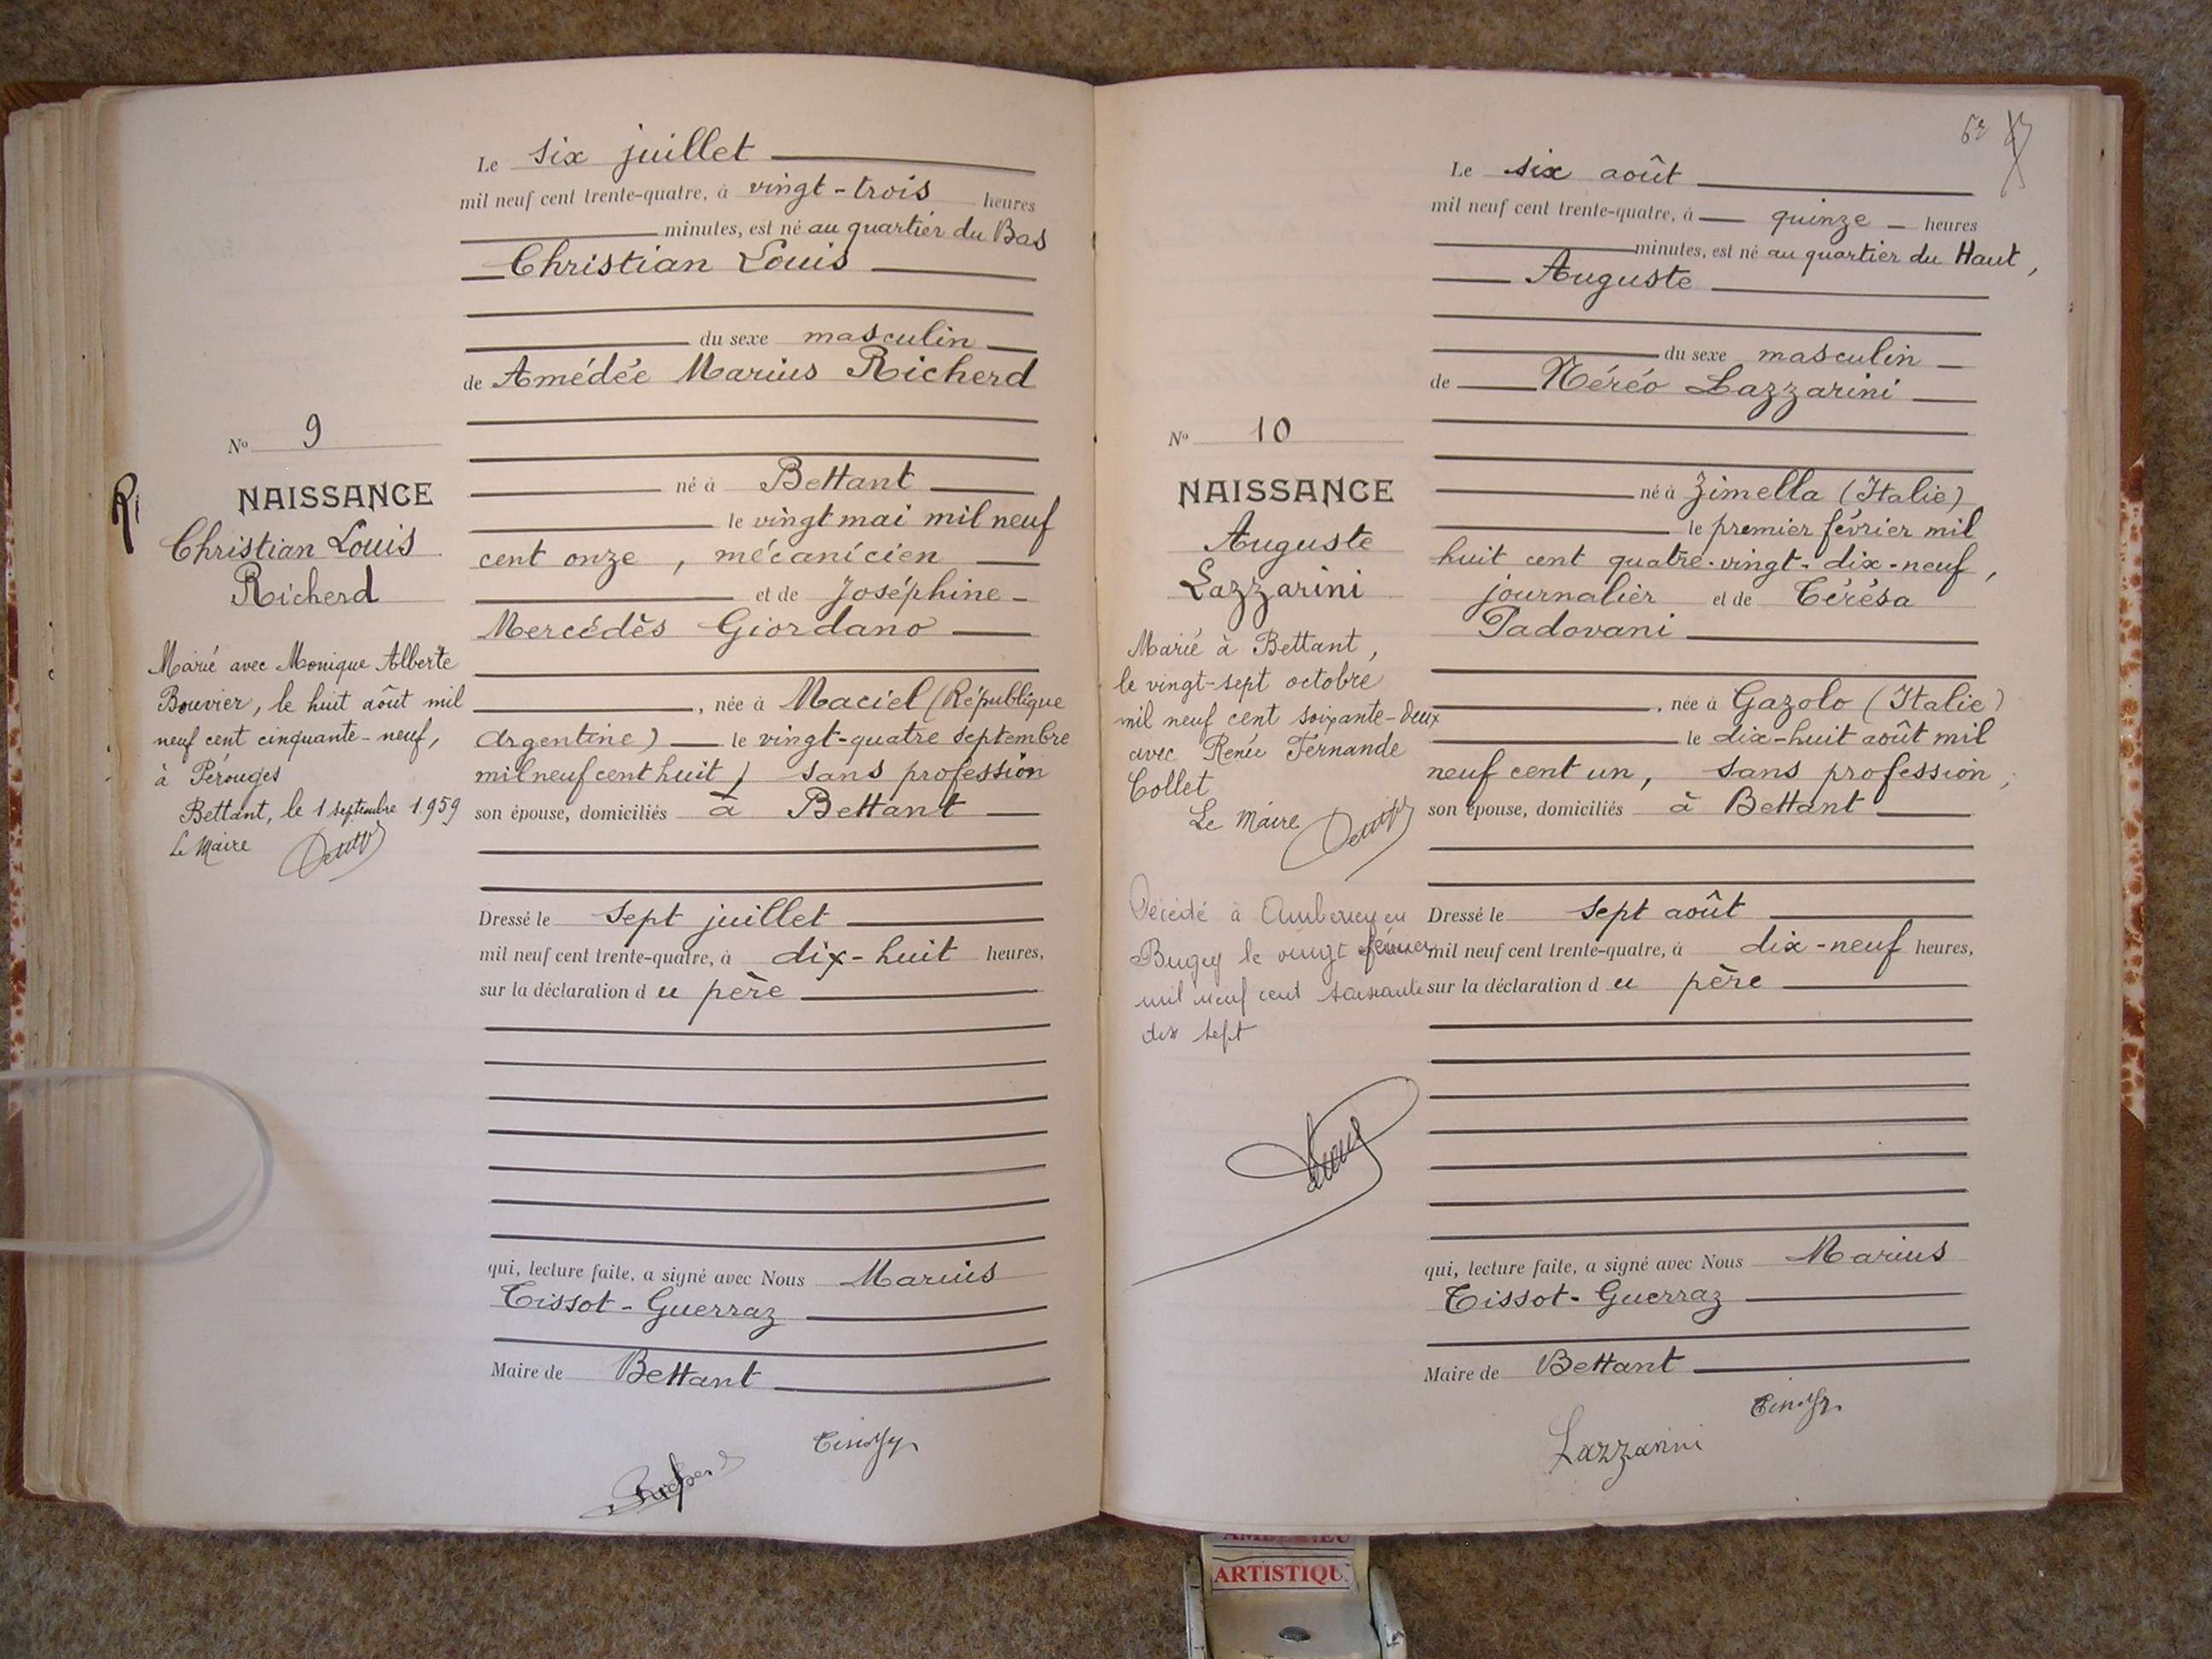 Le six juillet
mil neuf cent trente-quatre, à vingt-trois heures
minutes, est né au quartier du Bas
Christian Louis
du sexe masculin
de Amédée Marius Richerd
né à Bettant
le vingt mai mil neuf
cent onze, mécanicien
et de Joséphine
Mercédès Giordano
, née à Maciel (République
Argentine) le vingt-quatre septembre
mil neuf cent huit, sans profession
son épouse, domiciliés à Bettant
Dressé le sept juillet
mil neuf cent trente-quatre, à dix-huit heures,
sur la déclaration du père
qui, lecture faite, a signé avec Nous Marius
Tissot-Guerraz
Maire de Bettant
N° 9
Ri
NAISSANCE
Christian Louis
Richerd
Marié avec Monique Alberte
Bouvier, le huit août mil
neuf cent cinquante-neuf,
à Pérouges
Bettant, le 1 septembre 1959
Le Maire
62
Le six août
mil neuf cent trente-quatre, à quinze heures
minutes, est né au quartier du Haut,
Auguste
du sexe masculin
de Néréo Lazzarini
né à Zimella (Italie)
le premier février mil
huit cent quatre-vingt-dix-neuf,
journalier et de Térésa
Padovani
, née à Gazolo (Italie)
le dix-huit août mil
neuf cent un, sans profession,
son épouse, domiciliés à Bettant
Dressé le sept août
mil neuf cent trente-quatre, à dix-neuf heures,
sur la déclaration du père
qui, lecture faite, a signé avec Nous Marius
Tissot-Guerraz
Maire de Bettant
Lazzarini
N° 10
NAISSANCE
Auguste
Lazzarini
Marié à Bettant,
le vingt-sept octobre
mil neuf cent soixante-deux
avec Renée Fernande
Collet
Le Maire
Décédé à Ambérieu en
Bugey le vingt février
mil neuf cent soixante
dix sept
ARTISTIQU